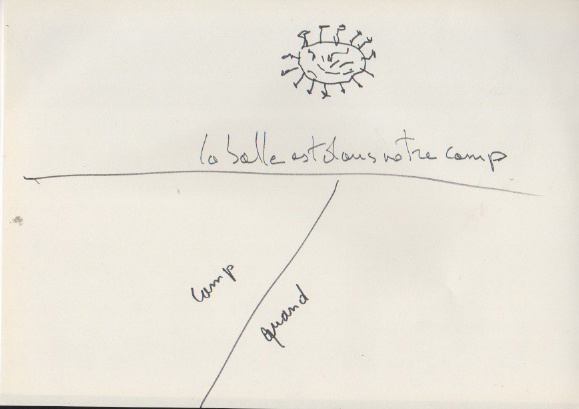 la balle est dans notre camp
camp
quand